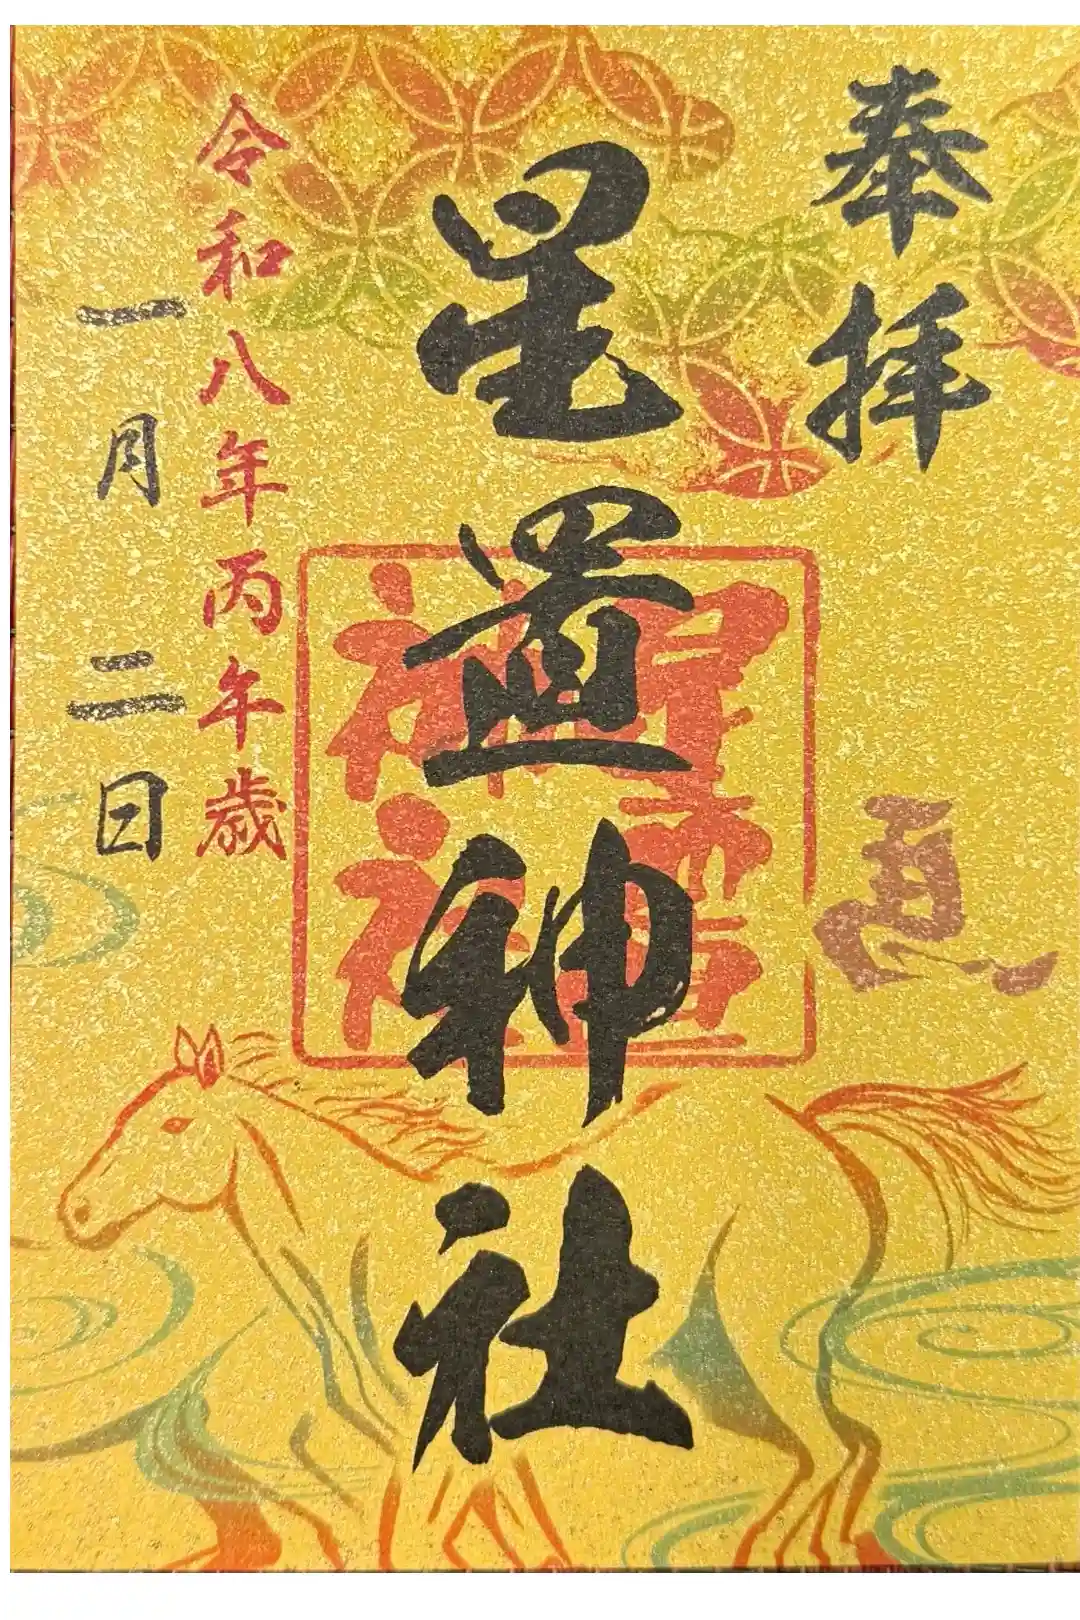 奉拝
星置神社
星置神社
令和八年丙午歳
一月二日